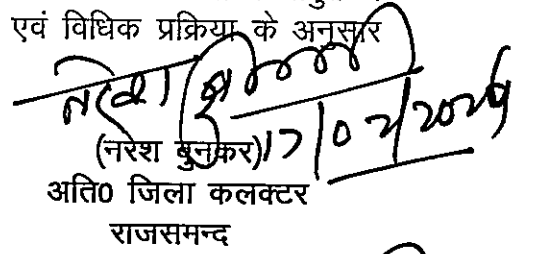 एवं विधिक प्रक्रिया के अनुसार
नरेश
(नरेश बुनकर)
अति0 जिला कलक्टर
राजसमन्द